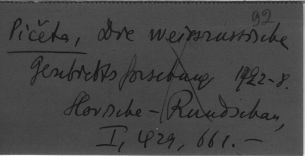 92
Pičeta, Die weissrussische
Geschichtsforschung 1922-8.
Slavische-Rundschau,
I, 429, 661. —